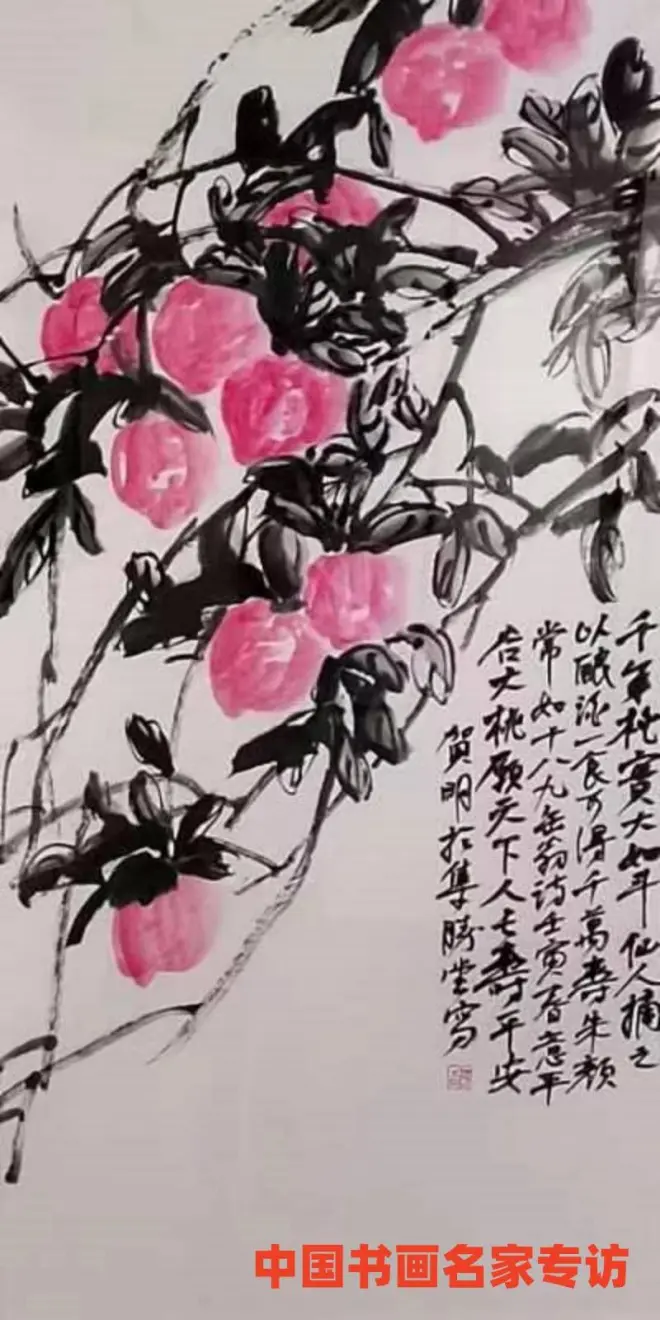 千年桃實大如斗仙人摘之
以釀酒一食可得千萬壽朱顏
常如十八九缶翁詩壬寅春意平
谷大桃願天下人長壽平安
賀明於集勝堂寫
中国书画名家专访